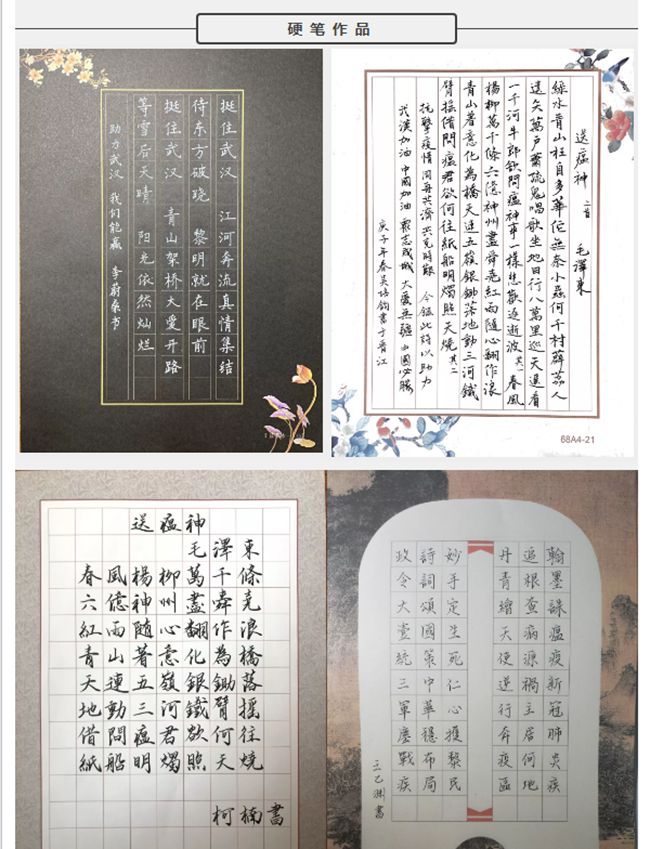 硬笔作品
挺住武汉 江河奔流真情集结
待东方破晓 黎明就在眼前
挺住武汉 青山架桥大爱开路
等雪后天晴 阳光依然灿烂
助力武汉 我们能赢 李蔚桑书
送瘟神 二首 毛澤東
綠水青山枉自多華佗無奈小蟲何千村薜荔人
遺矢萬戶蕭疏鬼唱歌坐地日行八萬里巡天遥看
一千河牛郎欲問瘟神事一樣悲歡逐逝波 其一 春風
楊柳萬千條六億神州盡舜堯紅雨隨心翻作浪
青山著意化為橋天連五嶺銀鋤落地動三河鐵
臂搖借問瘟君欲何往紙船明燭照天燒 其二
抗擊疫情 同舟共濟 共克時艱 今録此詩以助力
武漢加油 中國加油 衆志成城 大愛無疆 中國必勝
庚子年春吴培鈞書于晋江
68A4-21
送瘟神
毛澤東
春風楊柳萬千條
六億神州盡舜堯
紅雨隨心翻作浪
青山著意化為橋
天連五嶺銀鋤落
地動三河鐵臂摇
借問瘟君欲何往
紙船明燭照天燒
柯楠書
翰墨誅瘟疫新冠肺炎疾
追根查病源禍主居何地
丹青繪天使逆行奔疫區
妙手定生死仁心護黎民
詩詞頌國策中華穩布局
政令大壹統三軍鏖戰疾
王乙淵書